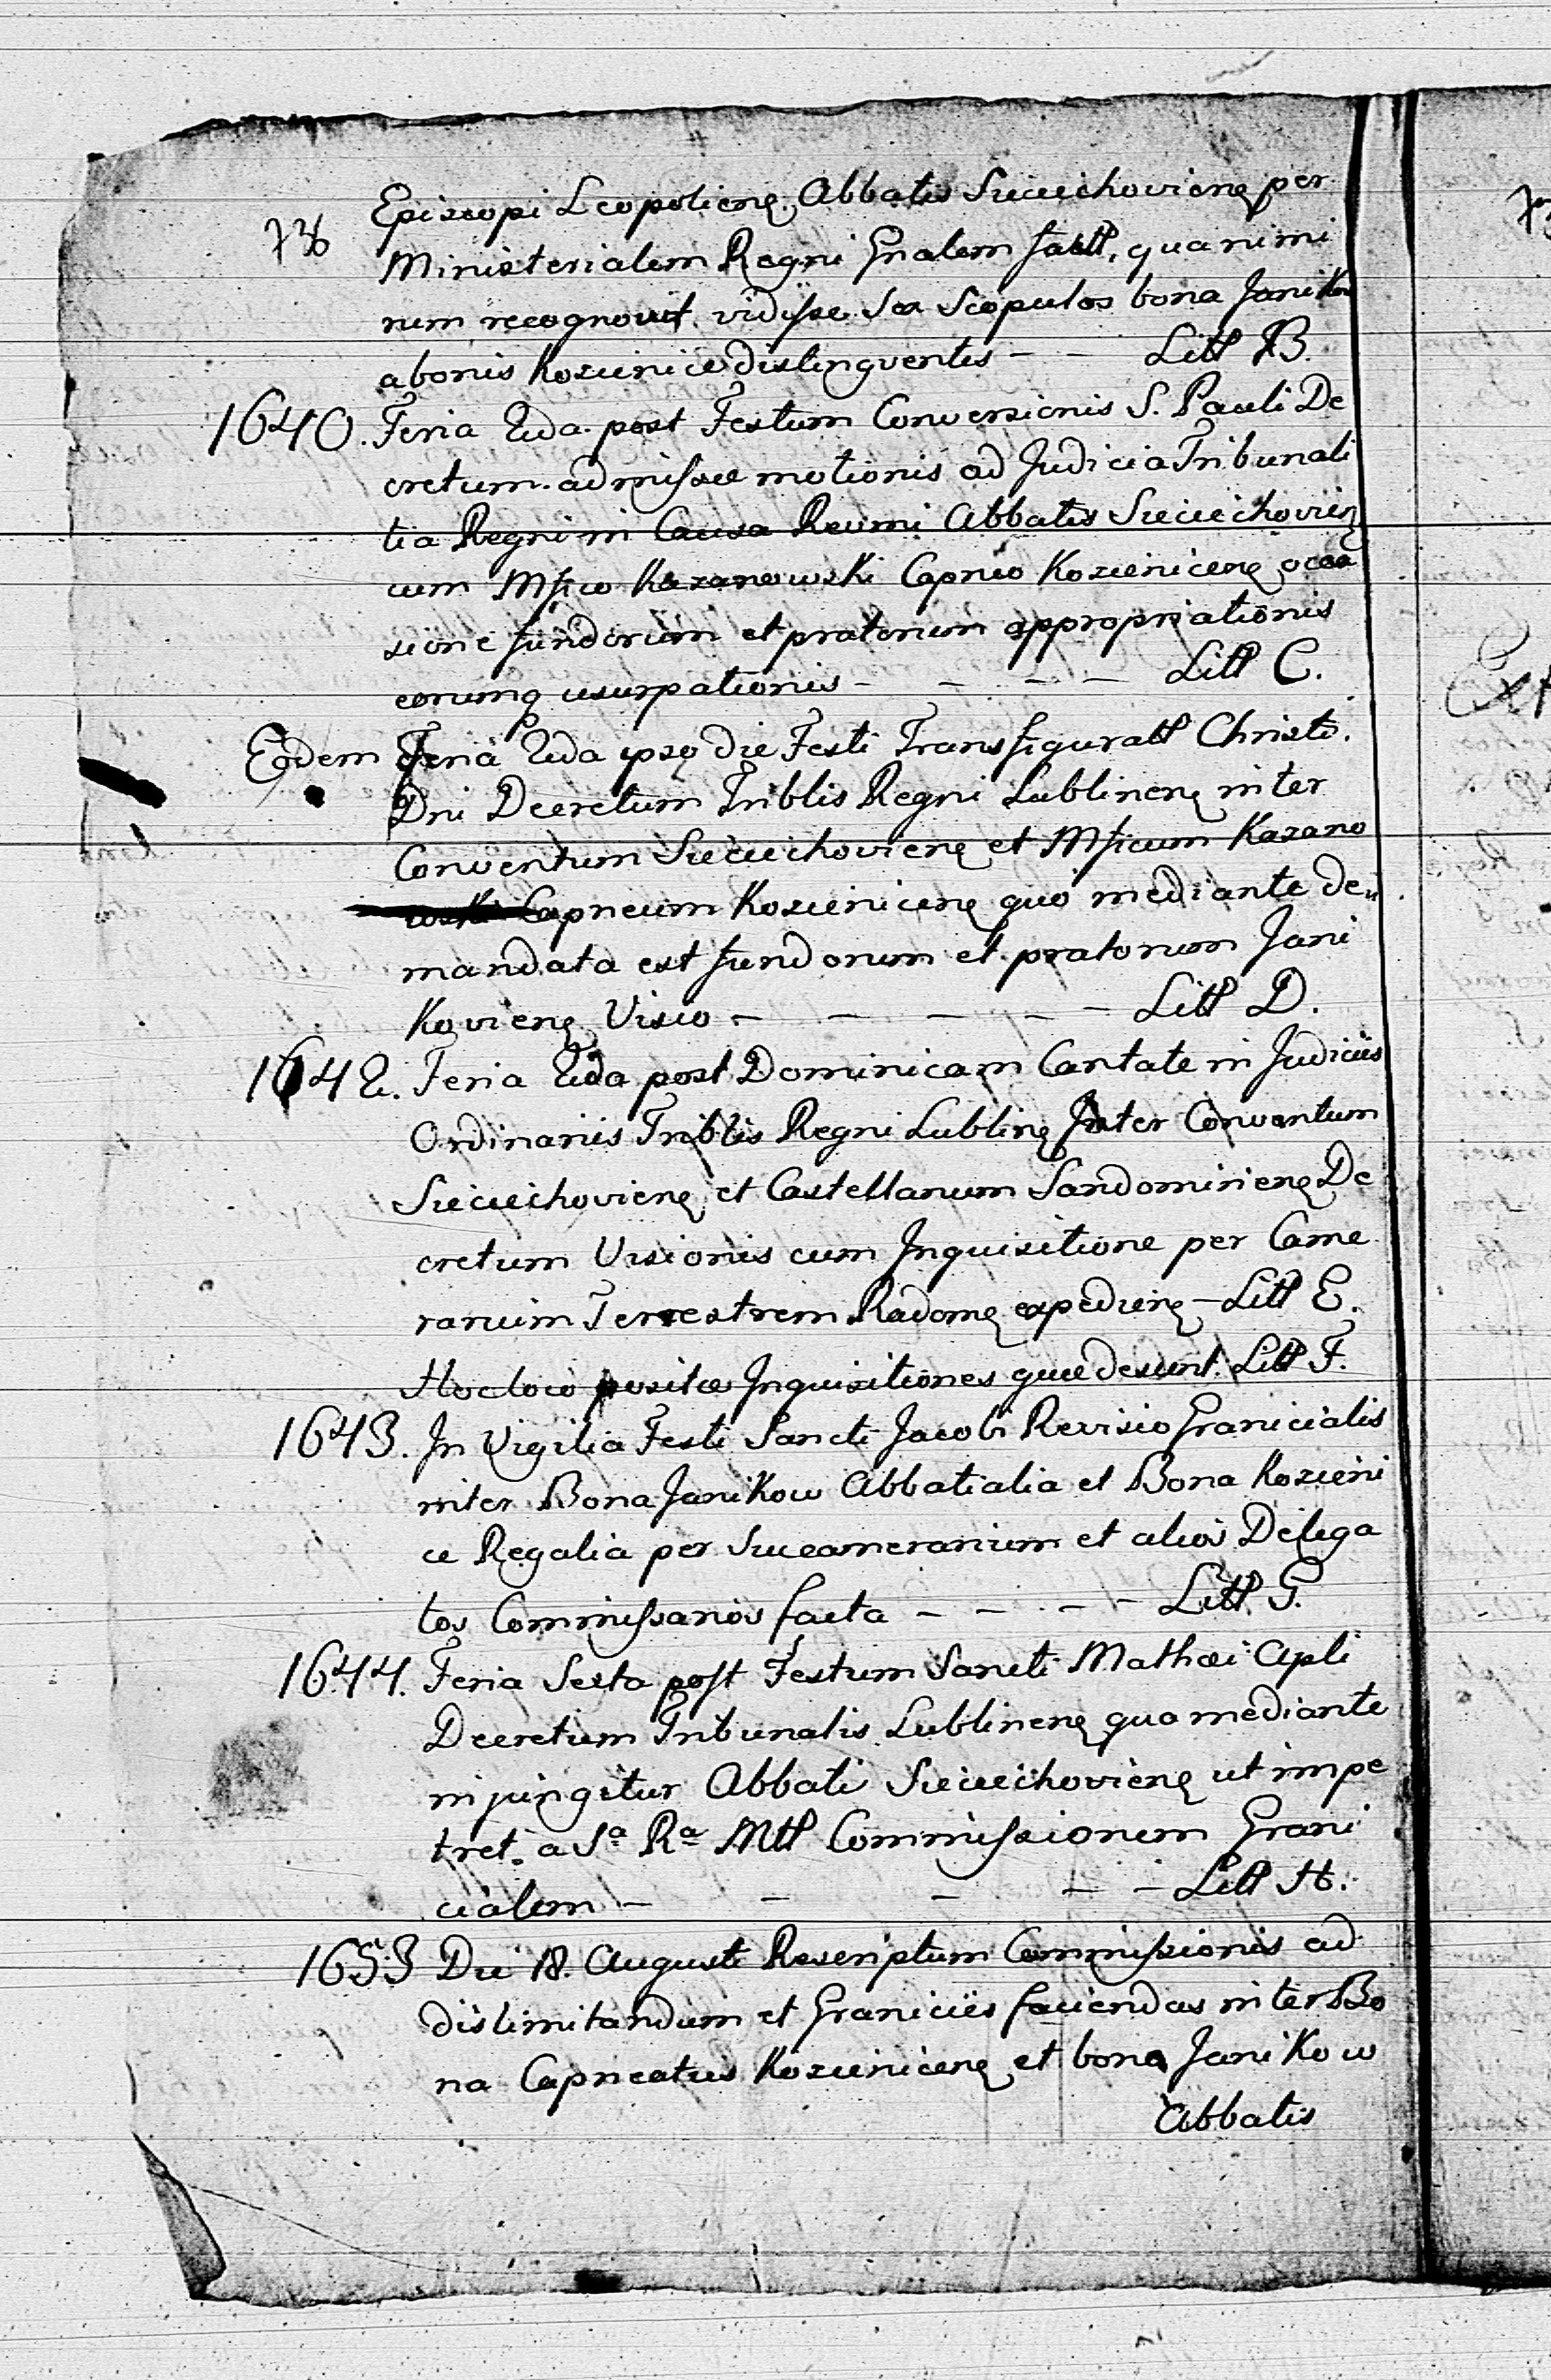 736
Episcopi Leopoliensꝫ Abbatis Sieciechoviensꝫ per
Ministerialem Regni Gnalem factt, qua nimi
rum recognovit vidisse Sex Scopulos bona Janikow
a bonis Kozienice distingventes - - Litt B.
1640. Feria 2da post Festum Conversionis S. Pauli De
cretum admissæ motionis ad Judicia Tribunali
tia Regni in Causa Revmi Abbatis Sieciechovienꝫ
cum Mfico Kazanowski Capneo Kozienicenꝫ occa
sione fundorum et pratorum appropriationis
eorumq usurpationis - - - - Litt C.
Eodem Feria 2da ipso die Festi Transfiguratt Christi
Dni Decretum Triblis Regni Lublinenꝫ inter
Conventum Sieciechovienꝫ et Mficum Kazano
wski Capneum Kozienicenꝫ quo mediante de„
mandata est fundorum et pratorum Jani
Kovienꝫ Visio - - - - - Litt D.
1642. Feria 2da post Dominicam Cantate in Judiciis
Ordinariis Triblis Regni Lublinꝫ Inter Conventum
Sieciechovienꝫ et Castellanum Sandomirienꝫ De
cretum Visionis cum Inquisitione per Came
rarium Terrestrem Radomꝫ expedienꝫ - Litt E.
Hocloco positæ Inquisitiones quæ desunt. Litt F.
1643. In Vigilia Festi Sancti Jacobi Revisio Granicialis
inter Bona Janikow Abbatialia et Bona Kozieni
ce Regalia per Succamerarium et alios Delega
tos Commissarios facta - - - - Litt G.
1644. Feria Sexta post Festum Sancti Mathæi Apli
Decretum Tribunalis Lublinenꝫ quo mediante
injungitur Abbati Sieciechovienꝫ ut impe
tret a Sa Ra Mtt Commissionem Grani
cialem - - - - - Litt H.
1653 Die 18. Augusti Rescriptum Commissionis ad
dislimitandum et Granicies faciendas inter Bo
na Capneatus Kozienicenꝫ et bona Janikow
Abbatis